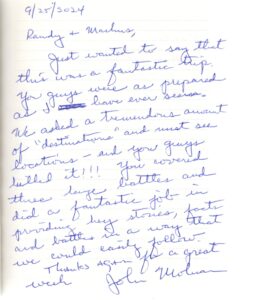 9/25/2024
Randy & Markus,
Just wanted to say that
this was a fantastic trip.
You guys were as prepared
as I have ever seen.
We asked a tremendous amount
of "destinations" and must see
locations - and you guys
killed it!!! You covered
three large battles and
did a fantastic job in
providing key stories, facts
and battles in a way that
we could easily follow.
Thanks again for a great
week John